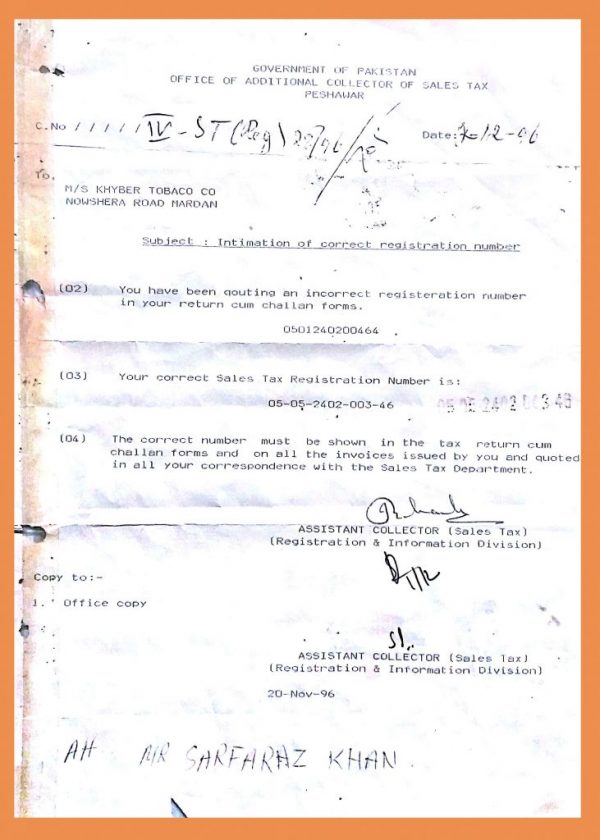 GOVERNMENT OF PAKISTAN
OFFICE OF ADDITIONAL COLLECTOR OF SALES TAX
PESHAWAR
C.No IV - ST (Reg) 20/96/ Date: -12-96
To,
M/S KHYBER TOBACO CO
NOWSHERA ROAD MARDAN
Subject : Intimation of correct registration number
(02) You have been qouting an incorrect registeration number
in your return cum challan forms.
0501240200464
(03) Your correct Sales Tax Registration Number is:
05-05-2402-003-46 05 05 2402 003 46
(04) The correct number must be shown in the tax return cum
challan forms and on all the invoices issued by you and quoted
in all your correspondence with the Sales Tax Department.
ASSISTANT COLLECTOR (Sales Tax)
(Registration & Information Division)
1/12
Copy to:-
1. Office copy
ASSISTANT COLLECTOR (Sales Tax)
(Registration & Information Division)
20-Nov-96
MR SARFARAZ KHAN.